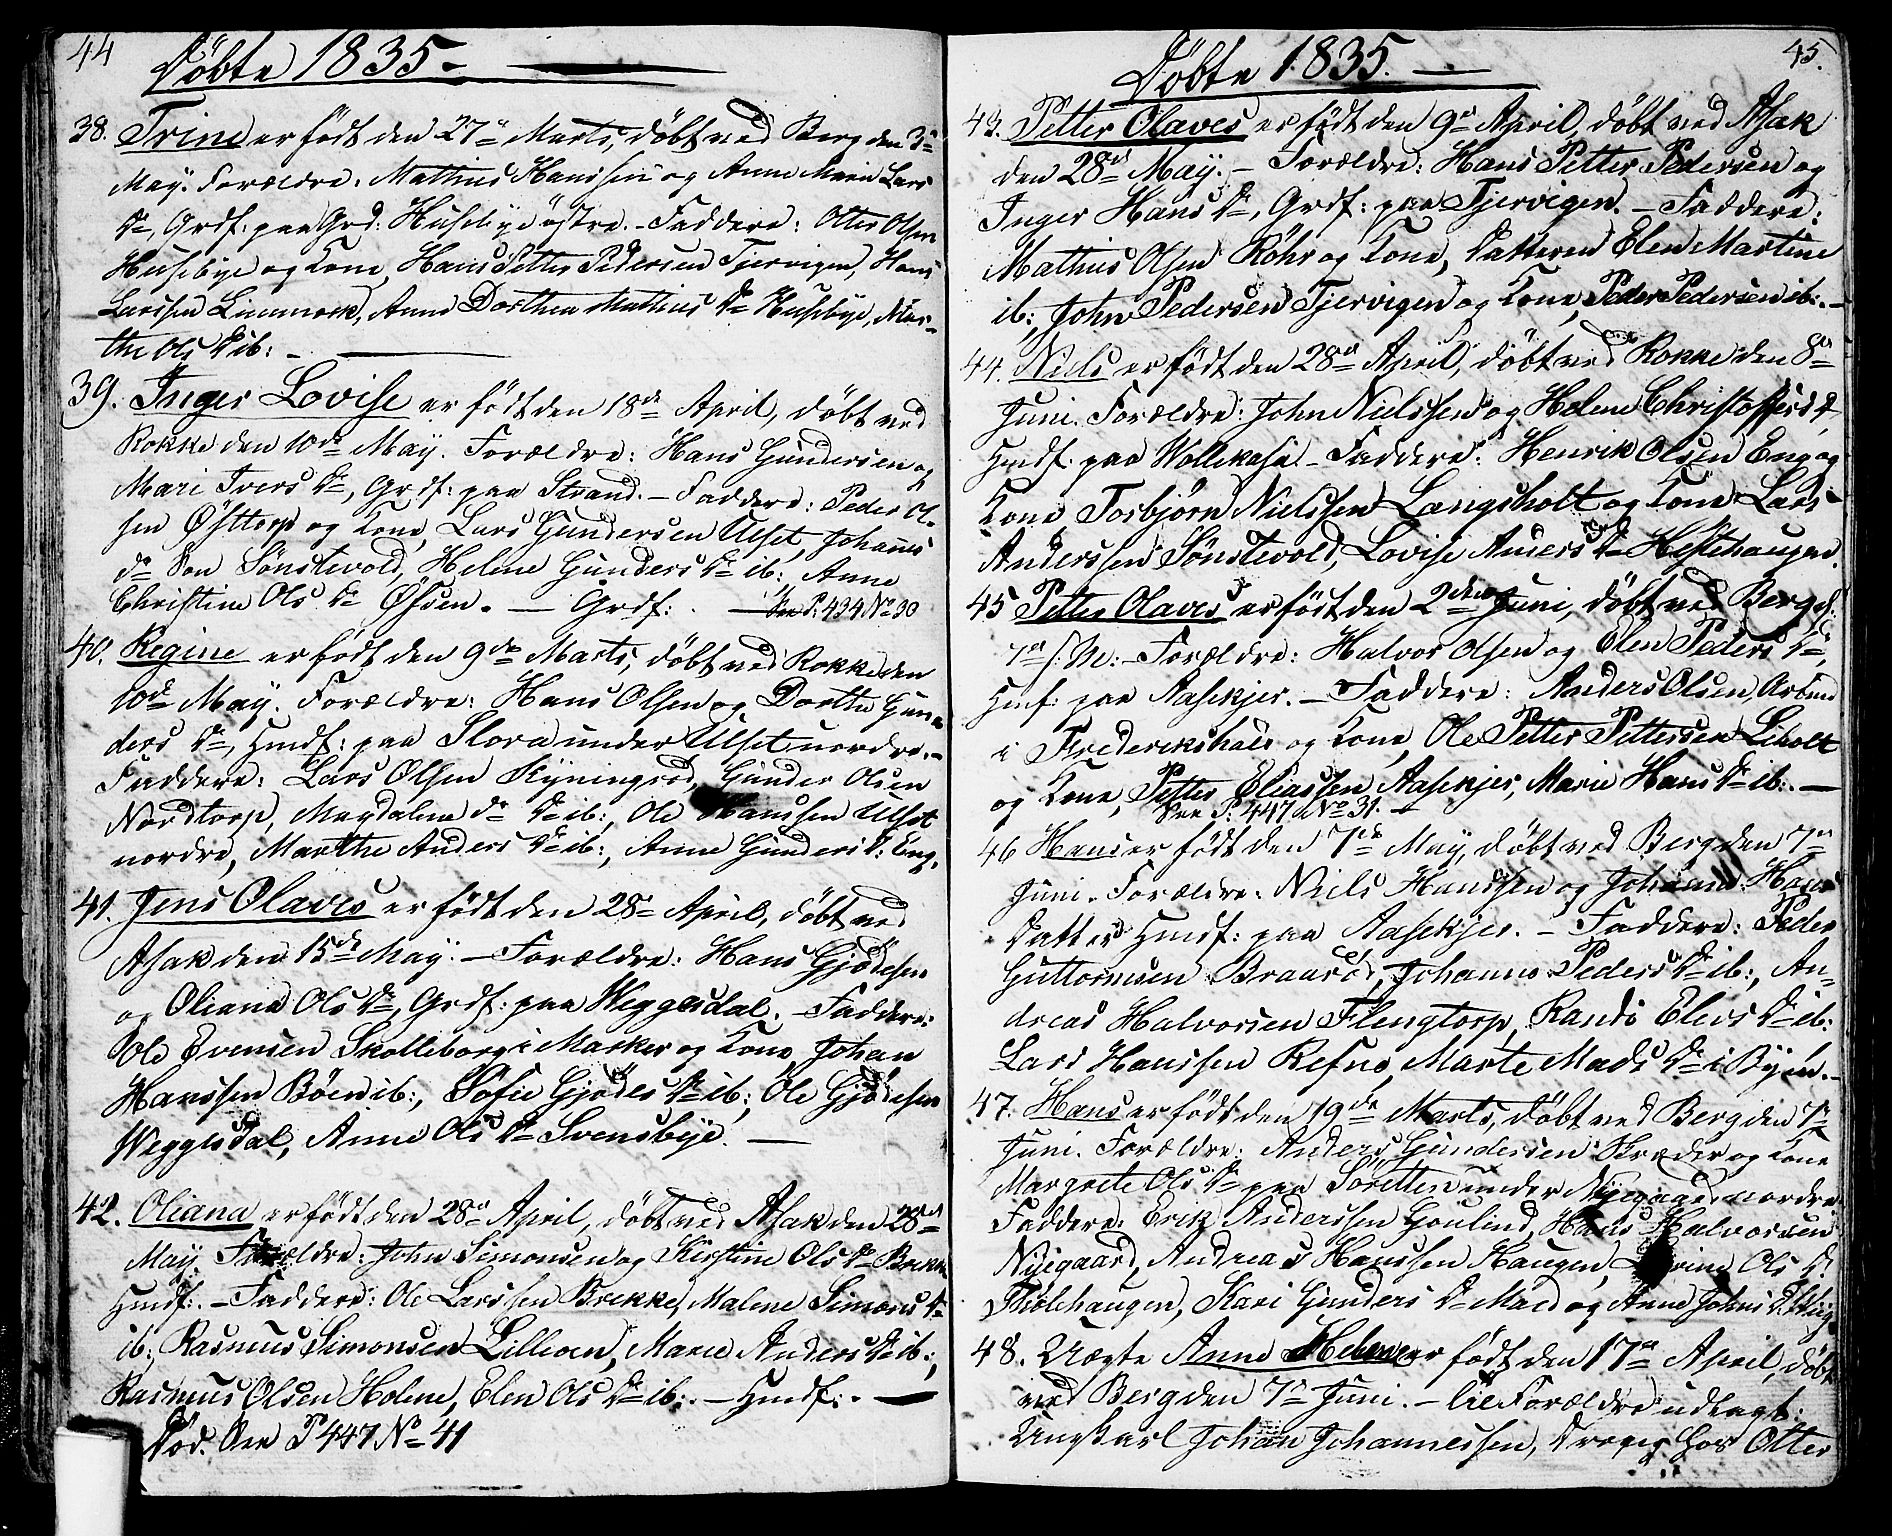 44
Döbte 1835.
38. Trine er födt den 27de Marts, döbt ved Berg den 3de
May. Forældre: Mathius Hanssen og Anne Marie Lars
Dr, Grdf: paa Grd: Husebye östre. - Faddere: Otter Olsen
Husebye og Kone, Hans Petter Pedersen Tjervigen, Hans
Larssen, Anne Dorthea Mathius Dr Husebye, Mar-
the Ols D ib: -
39. Inger Lovise er födt den 18de April, döbt ved
Rokke den 10de May. Forældre: Hans Gundersen og
Mari Ivers Dr, Grdf: paa Strand. - Faddere: Peder Ol-
sen Östtorp og Kone, Lars Gundersen Ulset, Johannes
do Son Sönstevold, Helene Gunders Dr ib:, Anne
Christine Ols Dr Öfsen. - Grdf: - See P. 434 No 30
40. Regine er födt den 9de Marts, döbt ved Rokke den
10de May. Forældre: Hans Olsen og Dorthe Gun-
ders Dr, Hmdf: paa Flora under Ulset nordre. -
Faddere: Lars Olsen Kyningsröd, Gunder Olsen
Nordtorp, Magdalena do Dr ib:, Ole Hanssen Ulset
nordre, Marthe Anders Dr ib:, Anne Gunders D: Eng.
41. Jens Olaves er födt den 28de April, döbt ved
Asak den 15de May. - Forældre: Hans Gjödesen
og Oliana Ols Dr, Grdf: paa Weggesdal. - Faddere:
Ole Evensen Skolleborg i Marker og Kone, Johan
Hanssen Böen ib:, Sofie Gjödes Dr ib:, Ole Gjödesen
Weggesdal, Anne Ols Dr Svensbye. -
42. Oliana er födt den 28de April, döbt ved Asak den 28de
May. Forældre: John Simonsen og Kirstine Ols Dr Brekke
Hmdf: - Faddere: Ole Larssen Brekke, Malene Simons Dr
ib:, Rasmus Simonsen Lilleoen, Maren Anders Dr ib:,
Rasmus Olsen Holme, Elen Ols Dr ib: - Hmdf: -
Död. See P 447 No 41
45.
Döbte 1835. -
43. Petter Olaves er födt den 9de April, döbt ved Asak
den 28de May. - Forældre: Hans Petter Pedersen og
Inger Hans Dr, Grdf: paa Tjervigen. - Faddere:
Mathius Olsen Röhr og Kone, Datteren Elen Martine
ib:, John Pedersen Tjervigen og Kone, Peder Pedersen ib: -
44. Niels er födt den 28de April, döbt ved Rokke den 8de
Juni. Forældre: John Nielssen og Helene Christoffers D,
Hmdf: paa Wollekasa. - Faddere: Henrik Olsen Eng og
Kone Torbjörn Nielssen Langsholt og Kone Lars
Anderssen Sönstevold, Lovise Anders Dr Hestehaugen.
45 Petter Olaves er födt den 2den Juni, döbt ved Berg d.
7de s: M: - Forældre: Halvor Olsen og Elen Peders Dr,
Hmf: paa Aasekjer. - Faddere: Anders Olsen, Arbmd
i Frederikshald og Kone, Ole Petter Pettersen Liholt
og Kone, Petter Eliassen Aasekjer, Marie Hans Dr ib: -
See P: 447 No 31. -
46 Hans er födt den 7de May, döbt ved Berg den 7de
Juni. Forældre: Niels Hanssen og Johanne Hans
Datter Hmdf: paa Aasekjer. - Faddere: Peder
Guttormsen Braaröd, Johanne Peders Dr ib:, An-
dreas Halvorsen Flengtorp, Randi Elevs Dr ib:
Lars Hanssen Refne, Marte Mads Dr i Byen. -
47. Hans er födt den 19de Marts, döbt ved Berg den 7de
Juni. Forældre: Anders Gundersen Kræder og Kone
Margrete Ols Dr paa Söretten under Nyegaard nordre
Faddere: Erik Anderssen Goulund, Hans Halvorssen
Nyegaard, Andreas Hanssen Haugen, Ols D
Tholehaugen, Kari Gunders Dr Moe og Anne Johns D.
48. Uægte Anne Helene er födt den 17de April, döbt
ved Berg den 7de Juni. - til Forældre udlagt:
Ungkarl Johan Johannessen, Dreng hos Otter